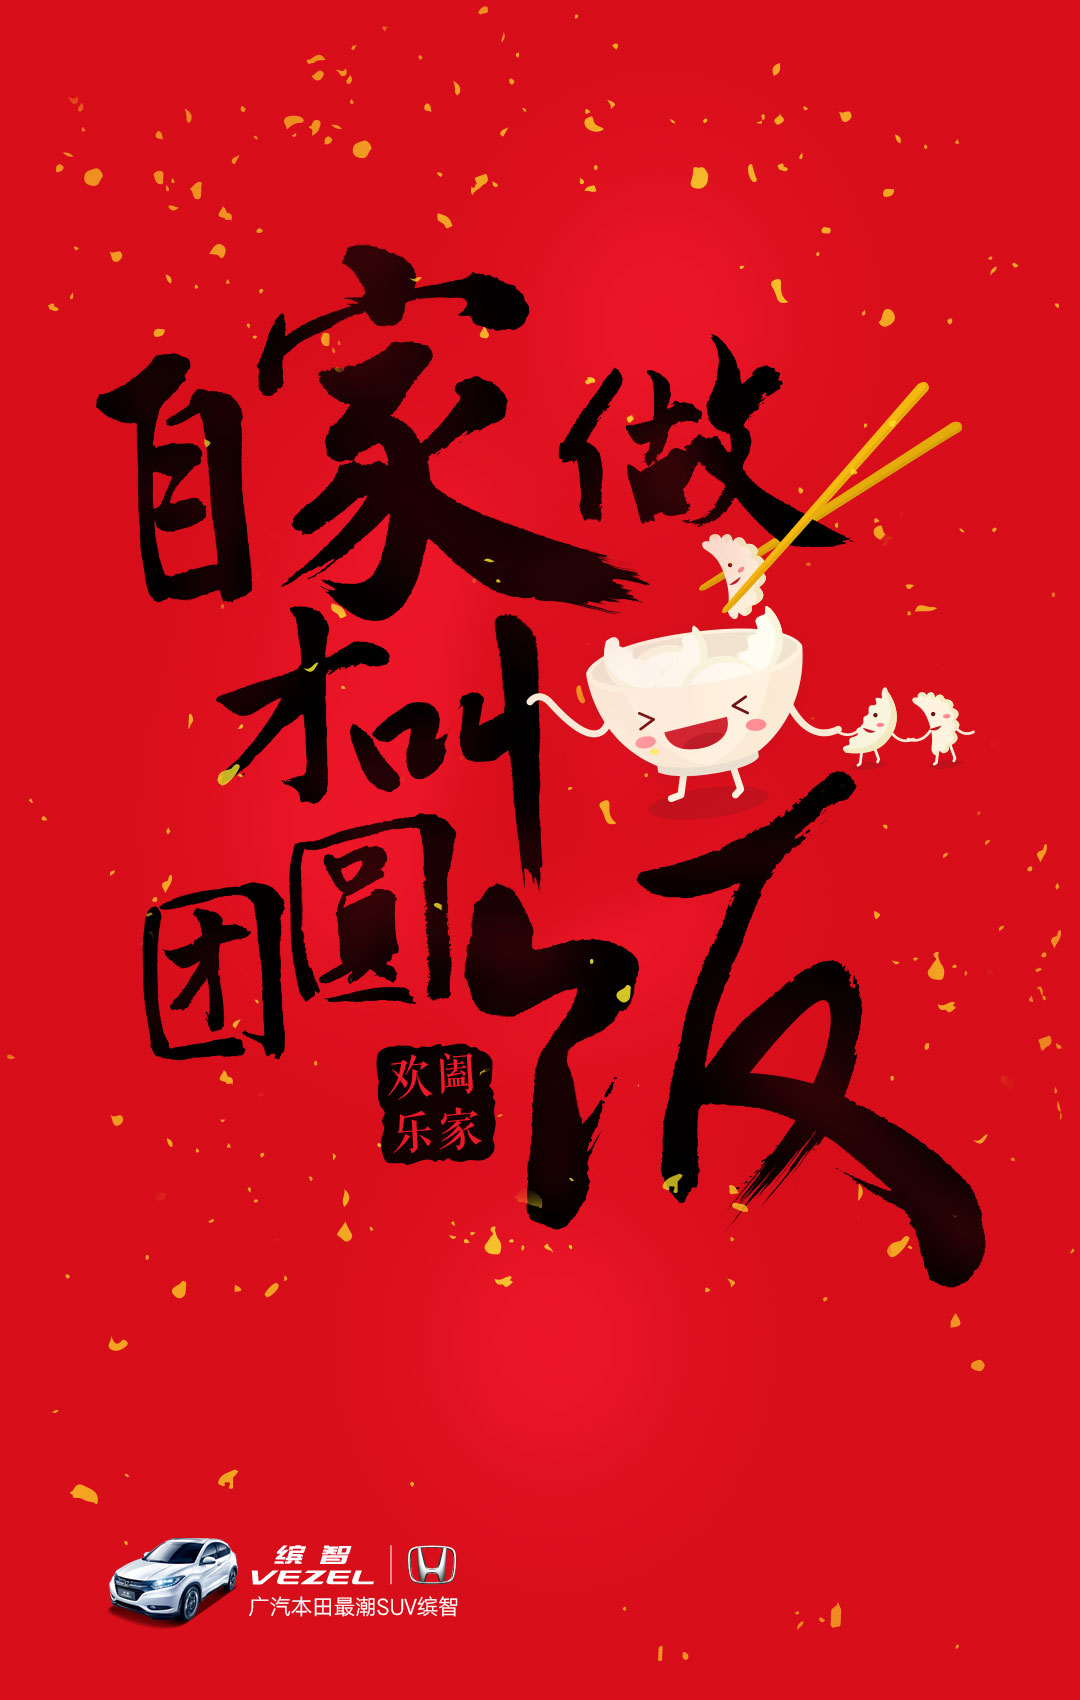 自家做
才叫
团圆饭
阖家
欢乐
缤智
VEZEL
广汽本田最潮SUV缤智